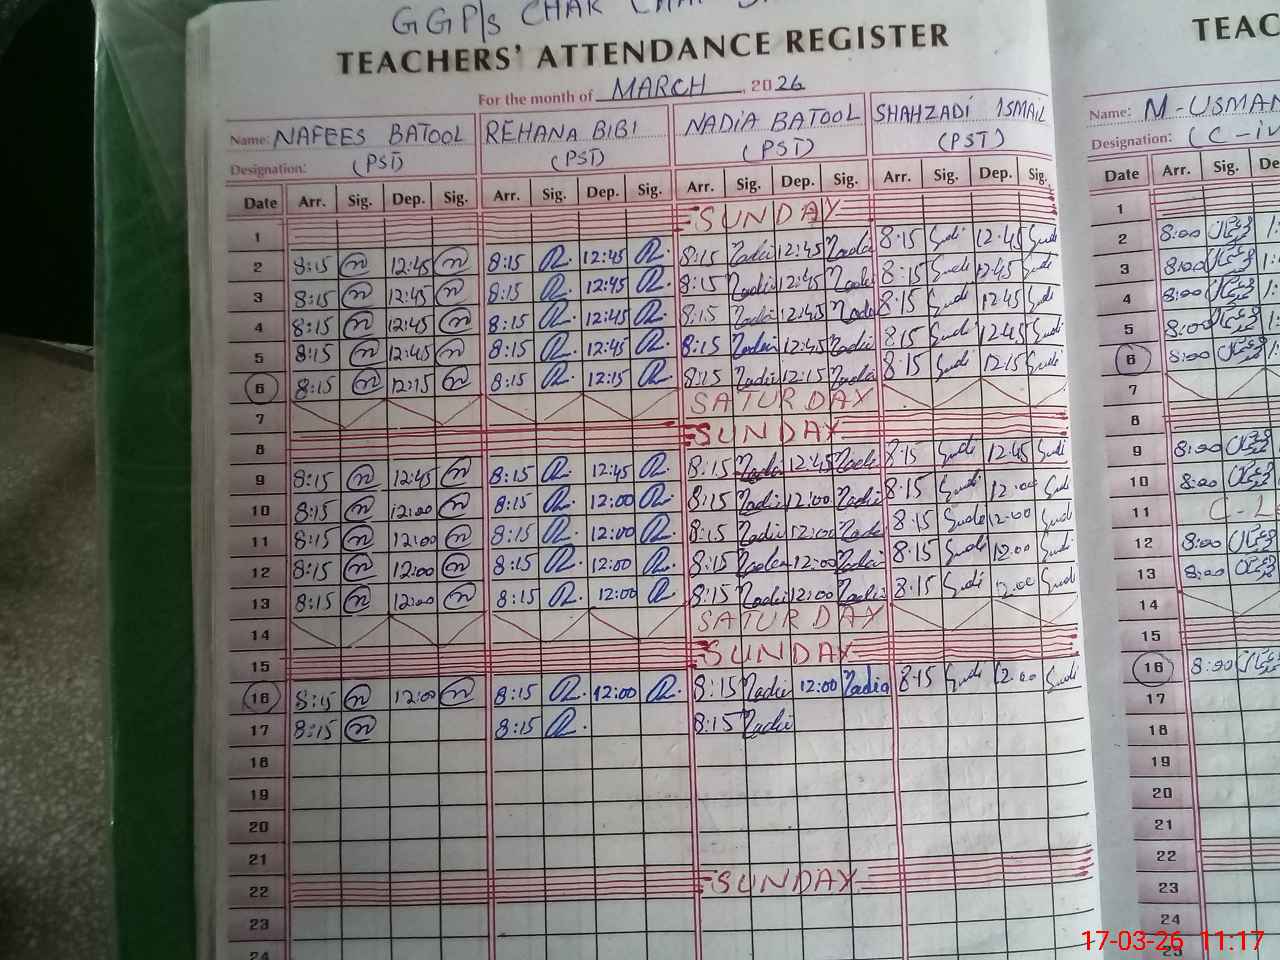 GGP/s CHAK
TEACHERS' ATTENDANCE REGISTER
For the month of MARCH, 2026
Name: NAFEES BATOOL REHANA BIBI NADIA BATOOL SHAHZADI ISMAIL
Designation: (PST) (PST) (PST) (PST)
Date Arr. Sig. Dep. Sig. Arr. Sig. Dep. Sig. Arr. Sig. Dep. Sig. Arr. Sig. Dep. Sig.
1 SUNDAY
2 8:15 n 12:45 n 8:15 R. 12:45 R. 8:15 Nadia 12:45 Nadia 8:15 12:45
3 8:15 n 12:45 n 8:15 R. 12:45 R. 8:15 Nadia 12:45 Nadia 8:15 12:45
4 8:15 n 12:45 n 8:15 R. 12:45 R. 8:15 Nadia 12:45 Nadia 8:15 12:45
5 8:15 n 12:45 n 8:15 R. 12:45 R. 8:15 Nadia 12:45 Nadia 8:15 12:45
6 8:15 n 12:15 n 8:15 R. 12:15 R. 8:15 Nadia 12:15 Nadia 8:15 12:15
7 SATURDAY
8 SUNDAY
9 8:15 n 12:45 n 8:15 R. 12:45 R. 8:15 Nadia 12:45 Nadia 8:15 12:45
10 8:15 n 12:00 n 8:15 R. 12:00 R. 8:15 Nadia 12:00 Nadia 8:15 12:00
11 8:15 n 12:00 n 8:15 R. 12:00 R. 8:15 Nadia 12:00 Nadia 8:15 12:00
12 8:15 n 12:00 n 8:15 R. 12:00 R. 8:15 Nadia 12:00 Nadia 8:15 12:00
13 8:15 n 12:00 n 8:15 R. 12:00 R. 8:15 Nadia 12:00 Nadia 8:15 12:00
14 SATURDAY
15 SUNDAY
16 8:15 n 12:00 n 8:15 R. 12:00 R. 8:15 Nadia 12:00 Nadia 8:15 12:00
17 8:15 n 8:15 R. 8:15 Nadia
18
19
20
21
22 SUNDAY
23
24
TEAC
Name: M-USMAN
Designation: (C-iv
Date Arr. Sig. De
1
2 8:00
3 8:00
4 8:00
5 8:00
6 8:00
7
8
9 8:00
10 8:00
11 C-L
12 8:00
13 8:00
14
15
16 8:00
17
18
19
20
21
22
23
24
25
17-03-26 11:17